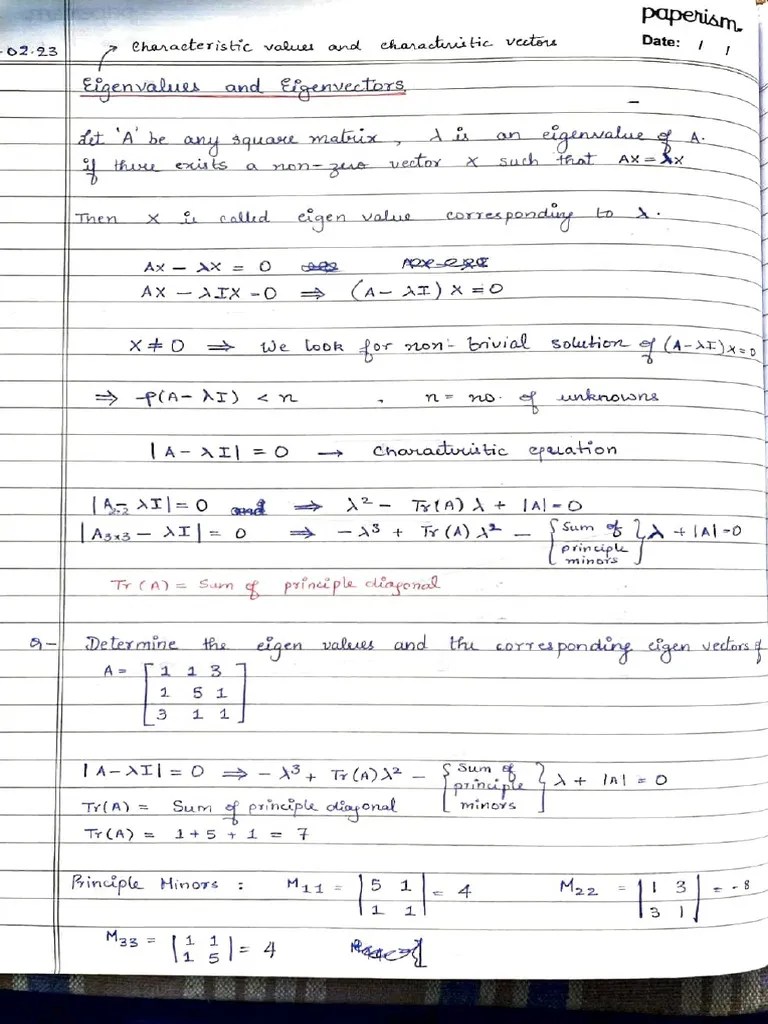 paperism.
Date: / /
-02.23
→ Characteristic values and characteristic vectors
Eigenvalues and Eigenvectors
Let 'A' be any square matrix, λ is an eigenvalue of A.
if there exists a non-zero vector X such that AX = λX
Then X is called eigen value corresponding to λ.
AX - λX = 0
AX - λIX = 0 ⇒ (A - λI) X = 0
X ≠ 0 ⇒ We look for non-trivial solution of (A-λI)X=0
⇒ ρ(A - λI) < n , n = no. of unknowns
|A - λI| = 0 → Characteristic equation
|A2×2 - λI| = 0 ⇒ λ² - Tr(A) λ + |A| = 0
|A3×3 - λI| = 0 ⇒ -λ³ + Tr(A) λ² - {Sum of principle minors} λ + |A| = 0
Tr(A) = Sum of principle diagonal
Q- Determine the eigen values and the corresponding eigen vectors of
A = [1 1 3
1 5 1
3 1 1]
|A-λI| = 0 ⇒ -λ³ + Tr(A)λ² - {Sum of principle minors} λ + |A| = 0
Tr(A) = Sum of principle diagonal
Tr(A) = 1 + 5 + 1 = 7
Principle Minors : M11 = |5 1 / 1 1| = 4 M22 = |1 3 / 3 1| = -8
M33 = |1 1 / 1 5| = 4